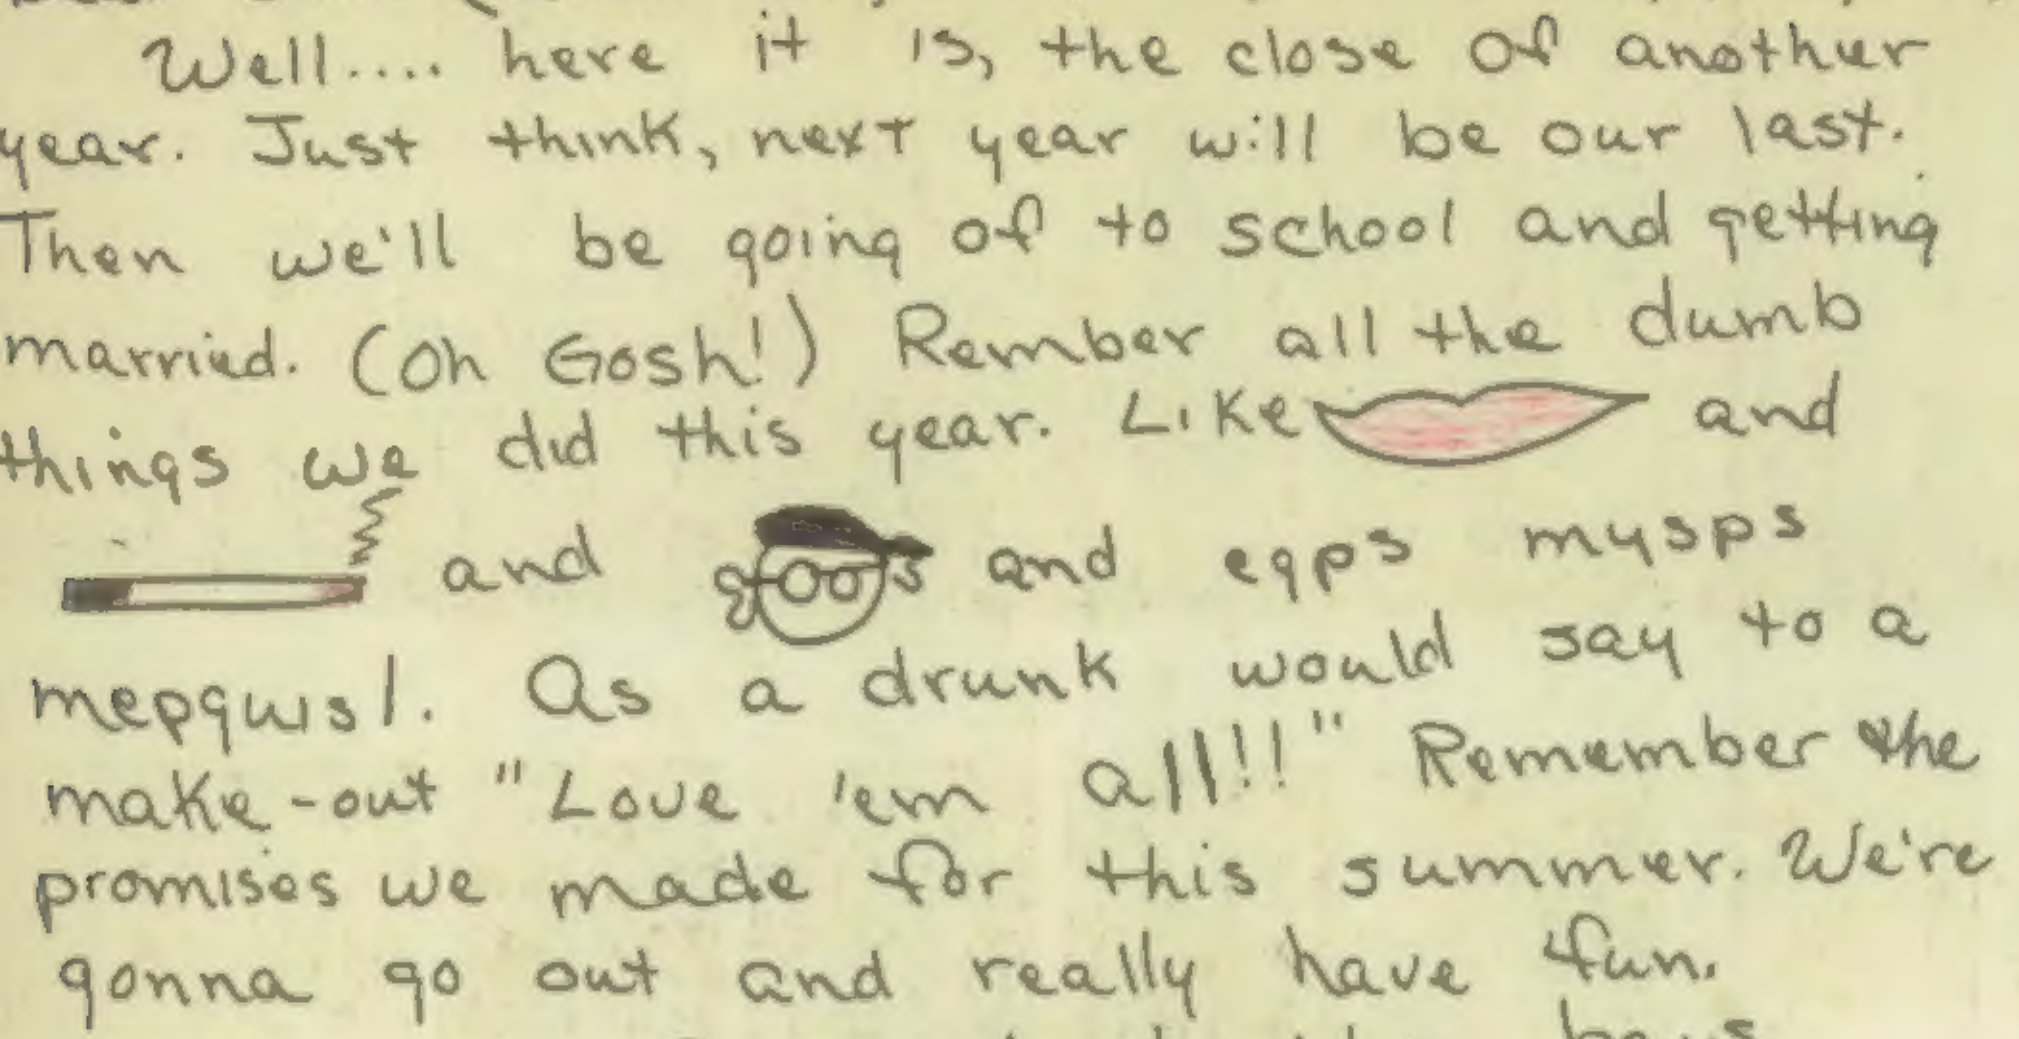 Well.... here it is, the close of another
year. Just think, next year will be our last.
Then we'll be going of to school and getting
married. (Oh Gosh!) Rember all the dumb
things we did this year. Like and
and and eqps mysps
mepquisl. As a drunk would say to a
make-out "Love 'em all!!!" Remember the
promises we made for this summer. We're
gonna go out and really have fun.
boys